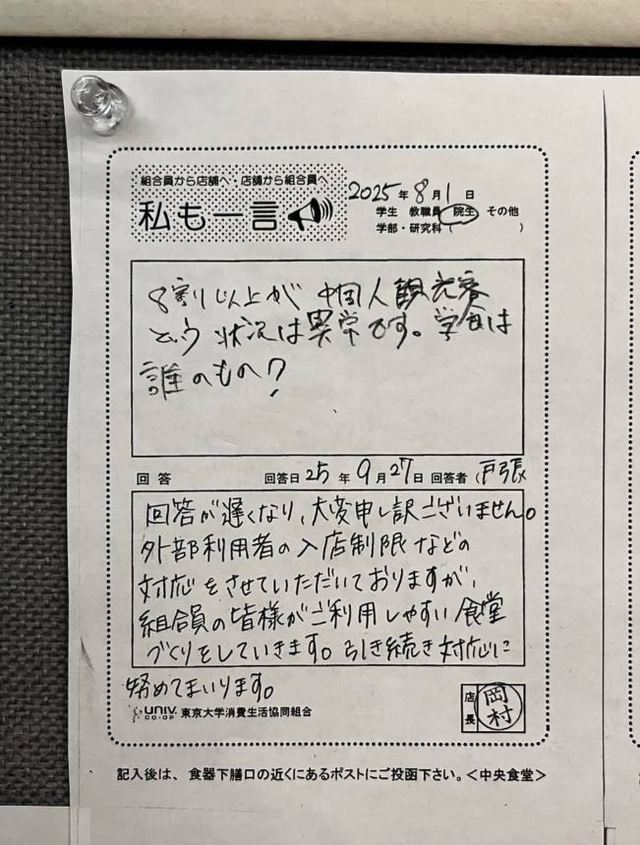 組合員から店舗へ・店舗から組合員へ
私も一言
2025年8月1日
学生 教職員 院生 その他
学部・研究科( )
8割以上が中国人観光客
という状況は異常です。学食は
誰のもの?
回答 回答日25年9月27日 回答者(戸張
回答が遅くなり、大変申し訳ございません。
外部利用者の入店制限などの
対応をさせていただいておりますが、
組合員の皆様がご利用しやすい食堂
づくりをしていきます。引き続き対応に
努めてまいります。
UNIV. CO-OP 東京大学消費生活協同組合
店長 岡村
記入後は、食器下膳口の近くにあるポストにご投函下さい。<中央食堂>